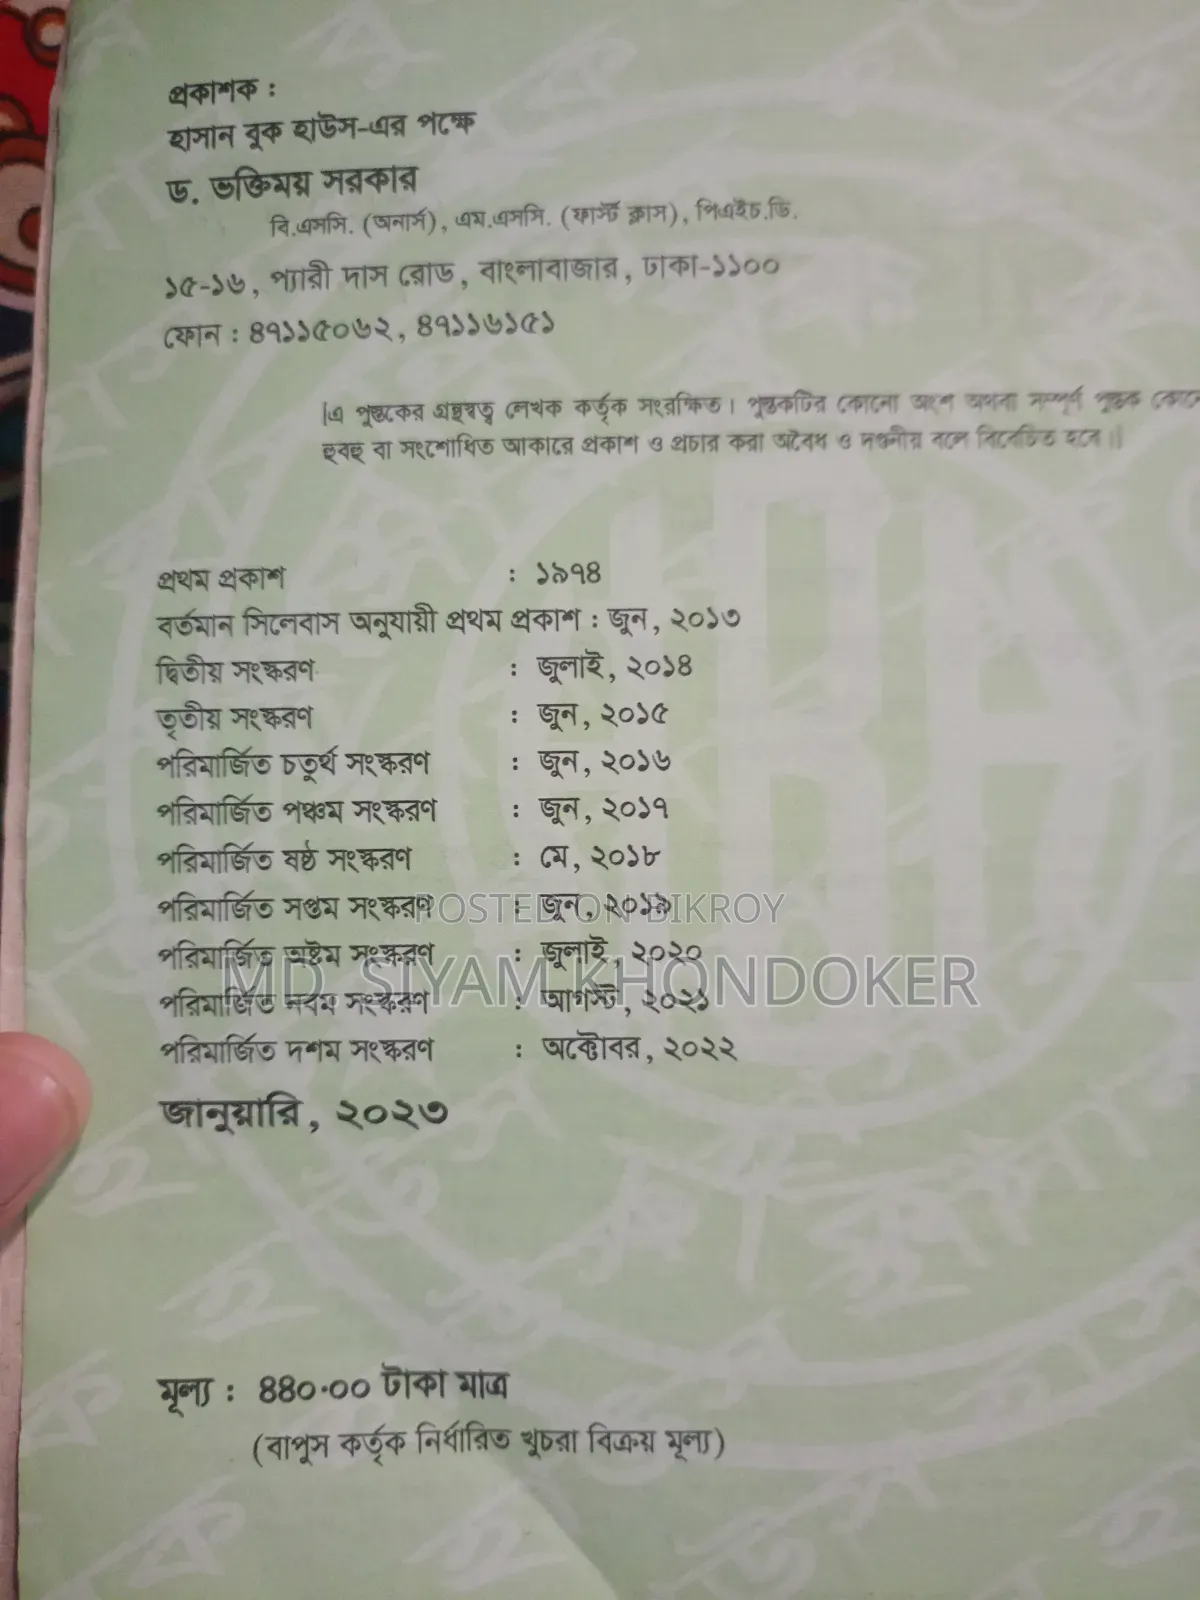 প্রকাশক :
হাসান বুক হাউস-এর পক্ষে
ড. ভক্তিময় সরকার
বি.এসসি. (অনার্স), এম.এসসি. (ফার্স্ট ক্লাস), পিএইচ.ডি.
১৫-১৬, প্যারী দাস রোড, বাংলাবাজার, ঢাকা-১১০০
ফোন : ৪৭১১৫০৬২, ৪৭১১৬১৫১
[এ পুস্তকের গ্রন্থস্বত্ব লেখক কর্তৃক সংরক্ষিত। পুস্তকটির কোনো অংশ অথবা সম্পূর্ণ পুস্তক
হুবহু বা সংশোধিত আকারে প্রকাশ ও প্রচার করা অবৈধ ও দণ্ডনীয় বলে বিবেচিত হবে।]
প্রথম প্রকাশ : ১৯৭৪
বর্তমান সিলেবাস অনুযায়ী প্রথম প্রকাশ : জুন, ২০১৩
দ্বিতীয় সংস্করণ : জুলাই, ২০১৪
তৃতীয় সংস্করণ : জুন, ২০১৫
পরিমার্জিত চতুর্থ সংস্করণ : জুন, ২০১৬
পরিমার্জিত পঞ্চম সংস্করণ : জুন, ২০১৭
পরিমার্জিত ষষ্ঠ সংস্করণ : মে, ২০১৮
পরিমার্জিত সপ্তম সংস্করণ : জুন, ২০১৯
POSTED ON BIKROY
পরিমার্জিত অষ্টম সংস্করণ : জুলাই, ২০২০
MD. SIYAM KHONDOKER
পরিমার্জিত নবম সংস্করণ : আগস্ট, ২০২১
পরিমার্জিত দশম সংস্করণ : অক্টোবর, ২০২২
জানুয়ারি, ২০২৩
মূল্য : ৪৪০·০০ টাকা মাত্র
(বাপুস কর্তৃক নির্ধারিত খুচরা বিক্রয় মূল্য)